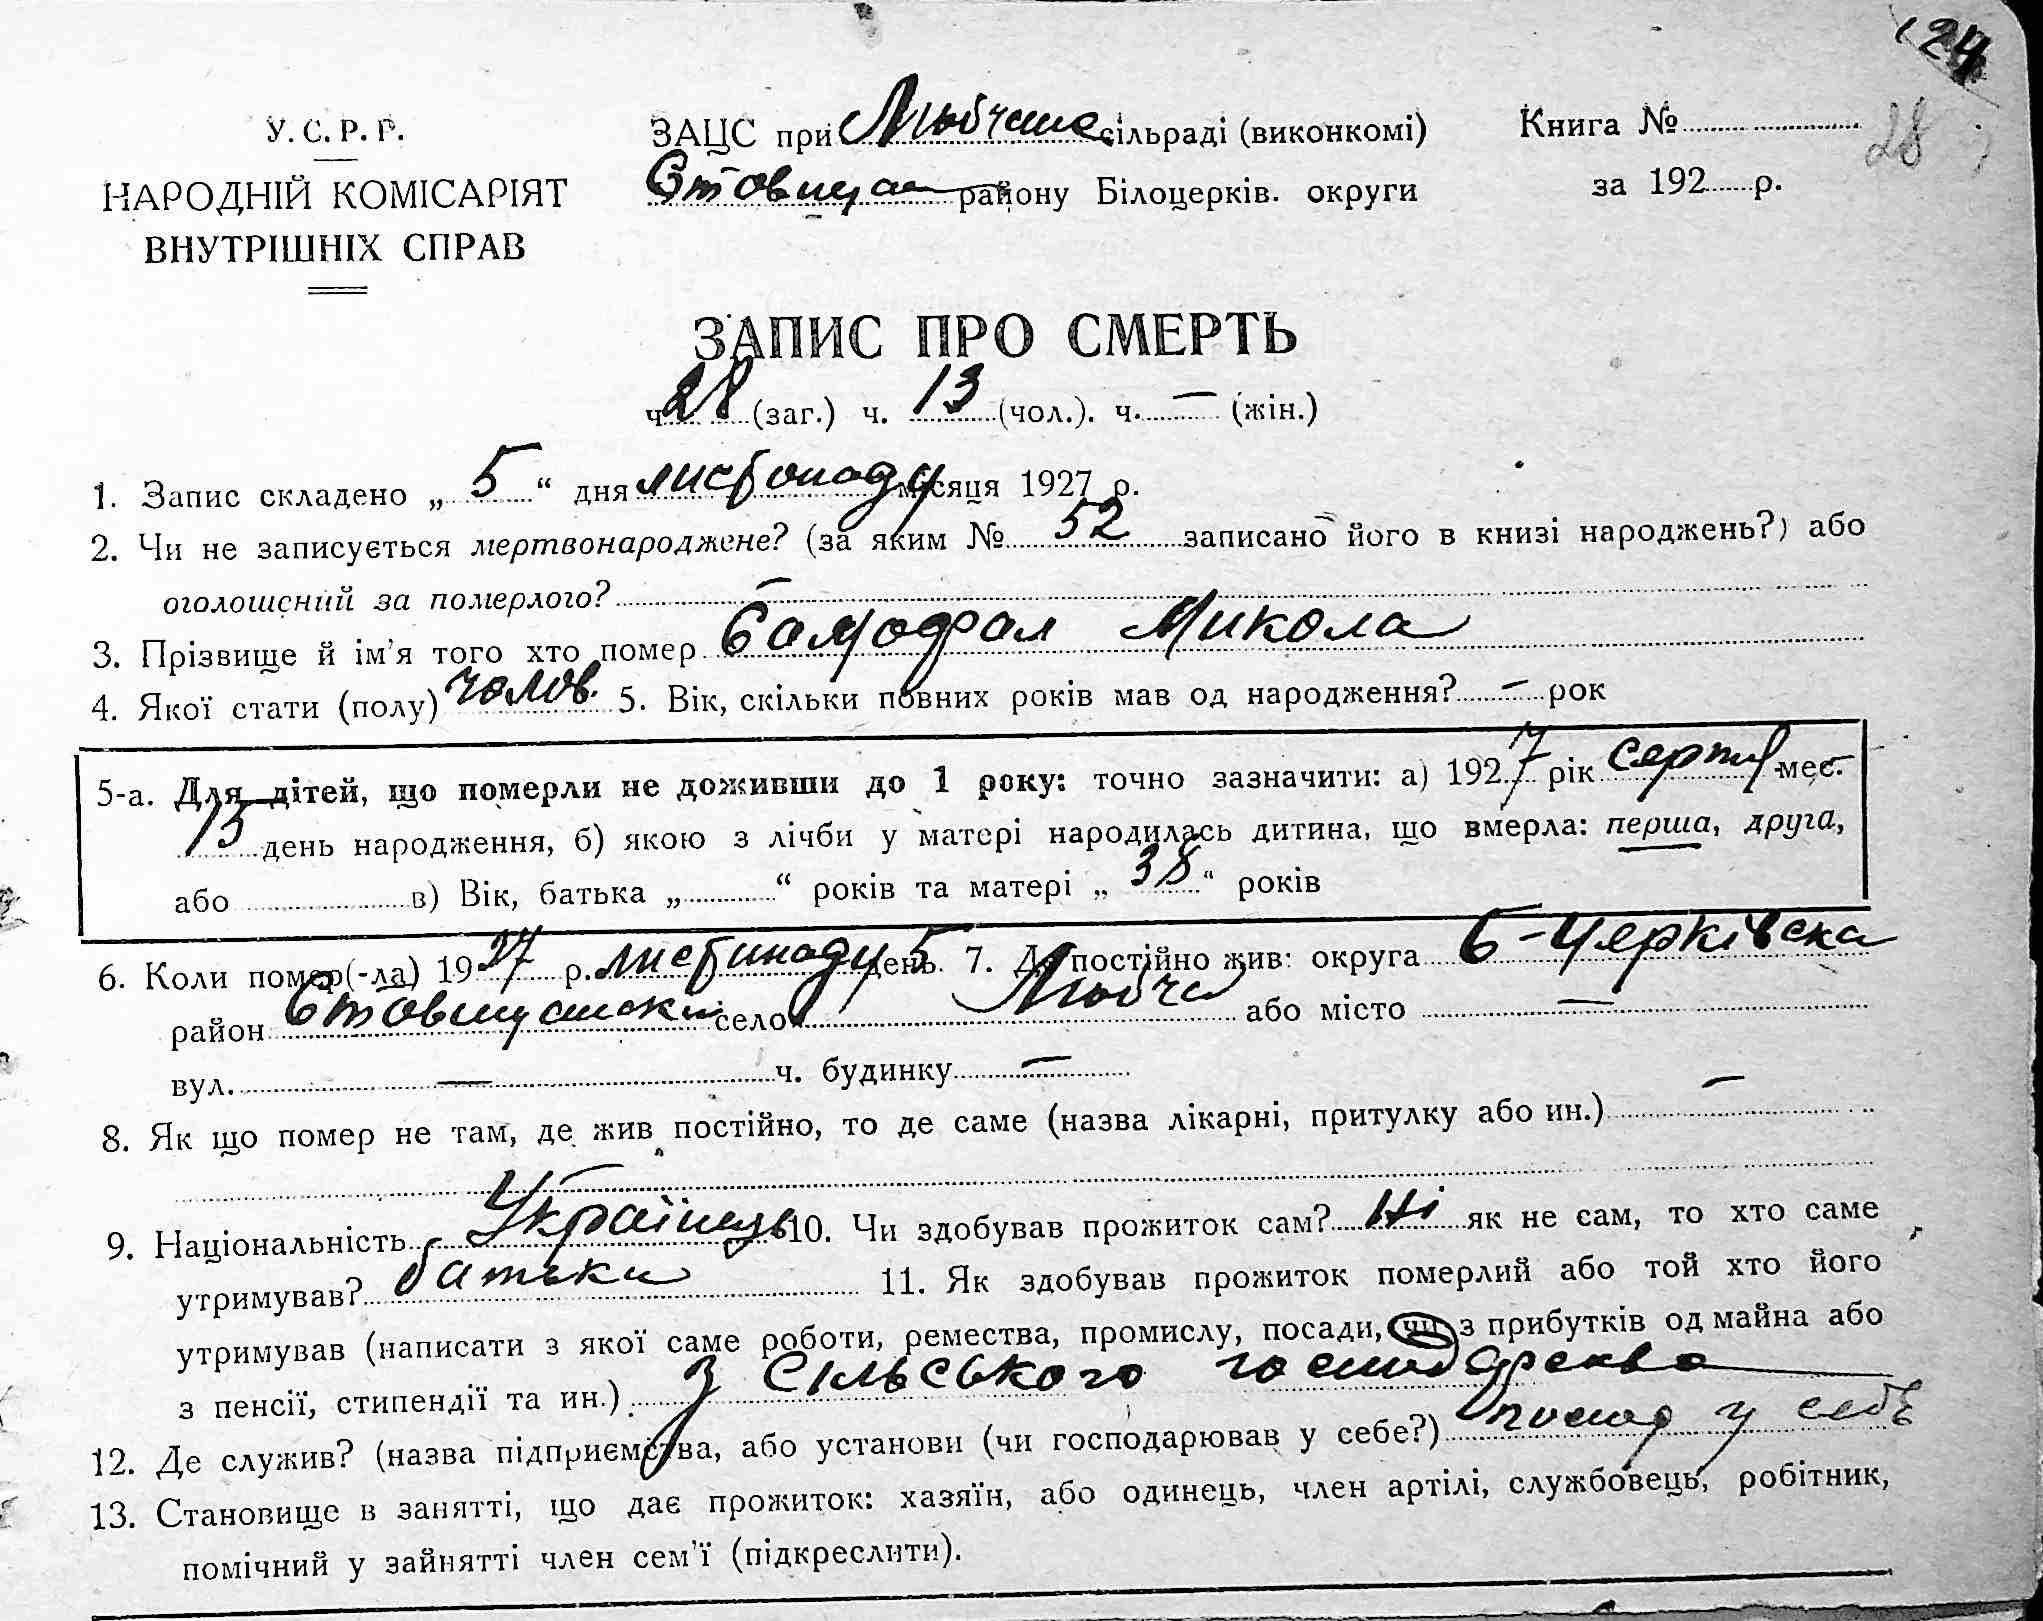 124
28
У. С. Р. Р.
НАРОДНІЙ КОМІСАРІЯТ
ВНУТРІШНІХ СПРАВ
ЗАЦС при Любчанс сільраді (виконкомі)
Ставищан району Білоцерків. округи
Книга №
за 192 р.
ЗАПИС ПРО СМЕРТЬ
ч. 28 (заг.) ч. 13 (чол.). ч. — (жін.)
1. Запис складено „ 5 “ дня листопаду місяця 1927 р.
2. Чи не записується мертвонароджене? (за яким № 52 записано його в книзі народжень?) або
оголошений за померлого? —
3. Прізвище й ім'я того хто помер Самофал Микола
4. Якої стати (полу) чолов. 5. Вік, скільки повних років мав од народження? — рок
5-а. Для дітей, що померли не доживши до 1 року: точно зазначити: а) 1927 рік серпня мес.
13 день народження, б) якою з лічби у матері народилась дитина, що вмерла: перша, друга,
або в) Вік, батька „ “ років та матері „ 38 “ років
6. Коли помер(-ла) 1927 р. листопаду 5 день. 7. Де постійно жив: округа Б-Церківська
район Ставищанский село Любча або місто —
вул. — ч. будинку —
8. Як що помер не там, де жив постійно, то де саме (назва лікарні, притулку або ин.) —
—
9. Національність Українець 10. Чи здобував прожиток сам? Ні як не сам, то хто саме
утримував? батьки 11. Як здобував прожиток померлий або той хто його
утримував (написати з якої саме роботи, ремества, промислу, посади, чи з прибутків од майна або
з пенсії, стипендії та ин.) з сільського господарства
12. Де служив? (назва підприємства, або установи (чи господарював у себе?) у себе
13. Становище в занятті, що дає прожиток: хазяїн, або одинець, член артілі, службовець, робітник,
помічний у зайнятті член сем'ї (підкреслити).